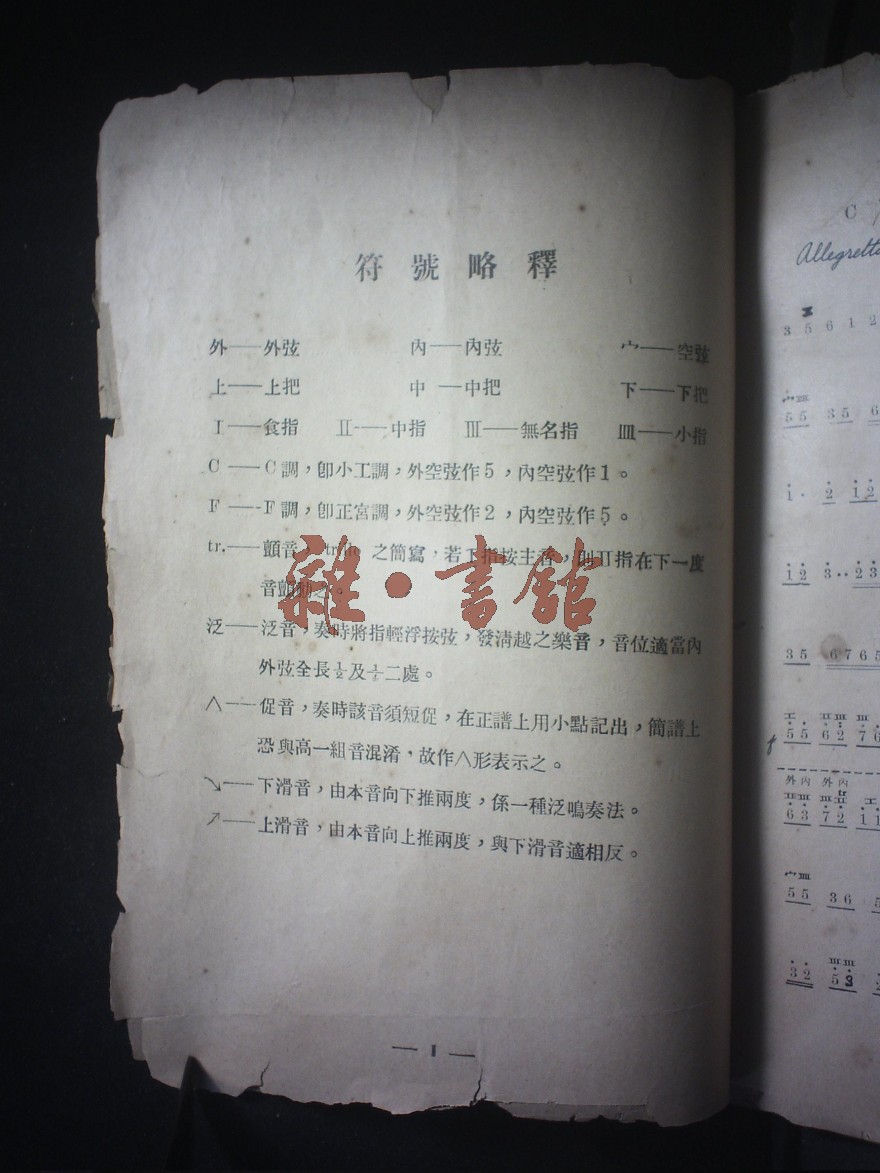 符號略釋
外——外弦 內——內弦 宀——空弦
上——上把 中——中把 下——下把
I——食指 II——中指 III——無名指 IIII——小指
C——C調，卽小工調，外空弦作5，內空弦作1。
F——F調，卽正宮調，外空弦作2，內空弦作5̣。
tr.——顫音， 之簡寫，若下指按主音，則II指在下一度
音顫動之。
泛——泛音，奏時將指輕浮按弦，發清越之樂音，音位適當內
外弦全長½及⅓二處。
∧——促音，奏時該音須短促，在正譜上用小點記出，簡譜上
恐與高一組音混淆，故作∧形表示之。
↘——下滑音，由本音向下推兩度，係一種泛鳴奏法。
↗——上滑音，由本音向上推兩度，與下滑音適相反。
— 1 —
雜·書館
C
Allegretto
3 5 6 1 2
55 35 6
1· 2 12
12 3·· 23
35 6765
55 62 76
外內 外內
tr
63 72 11
55 36 5
32 53